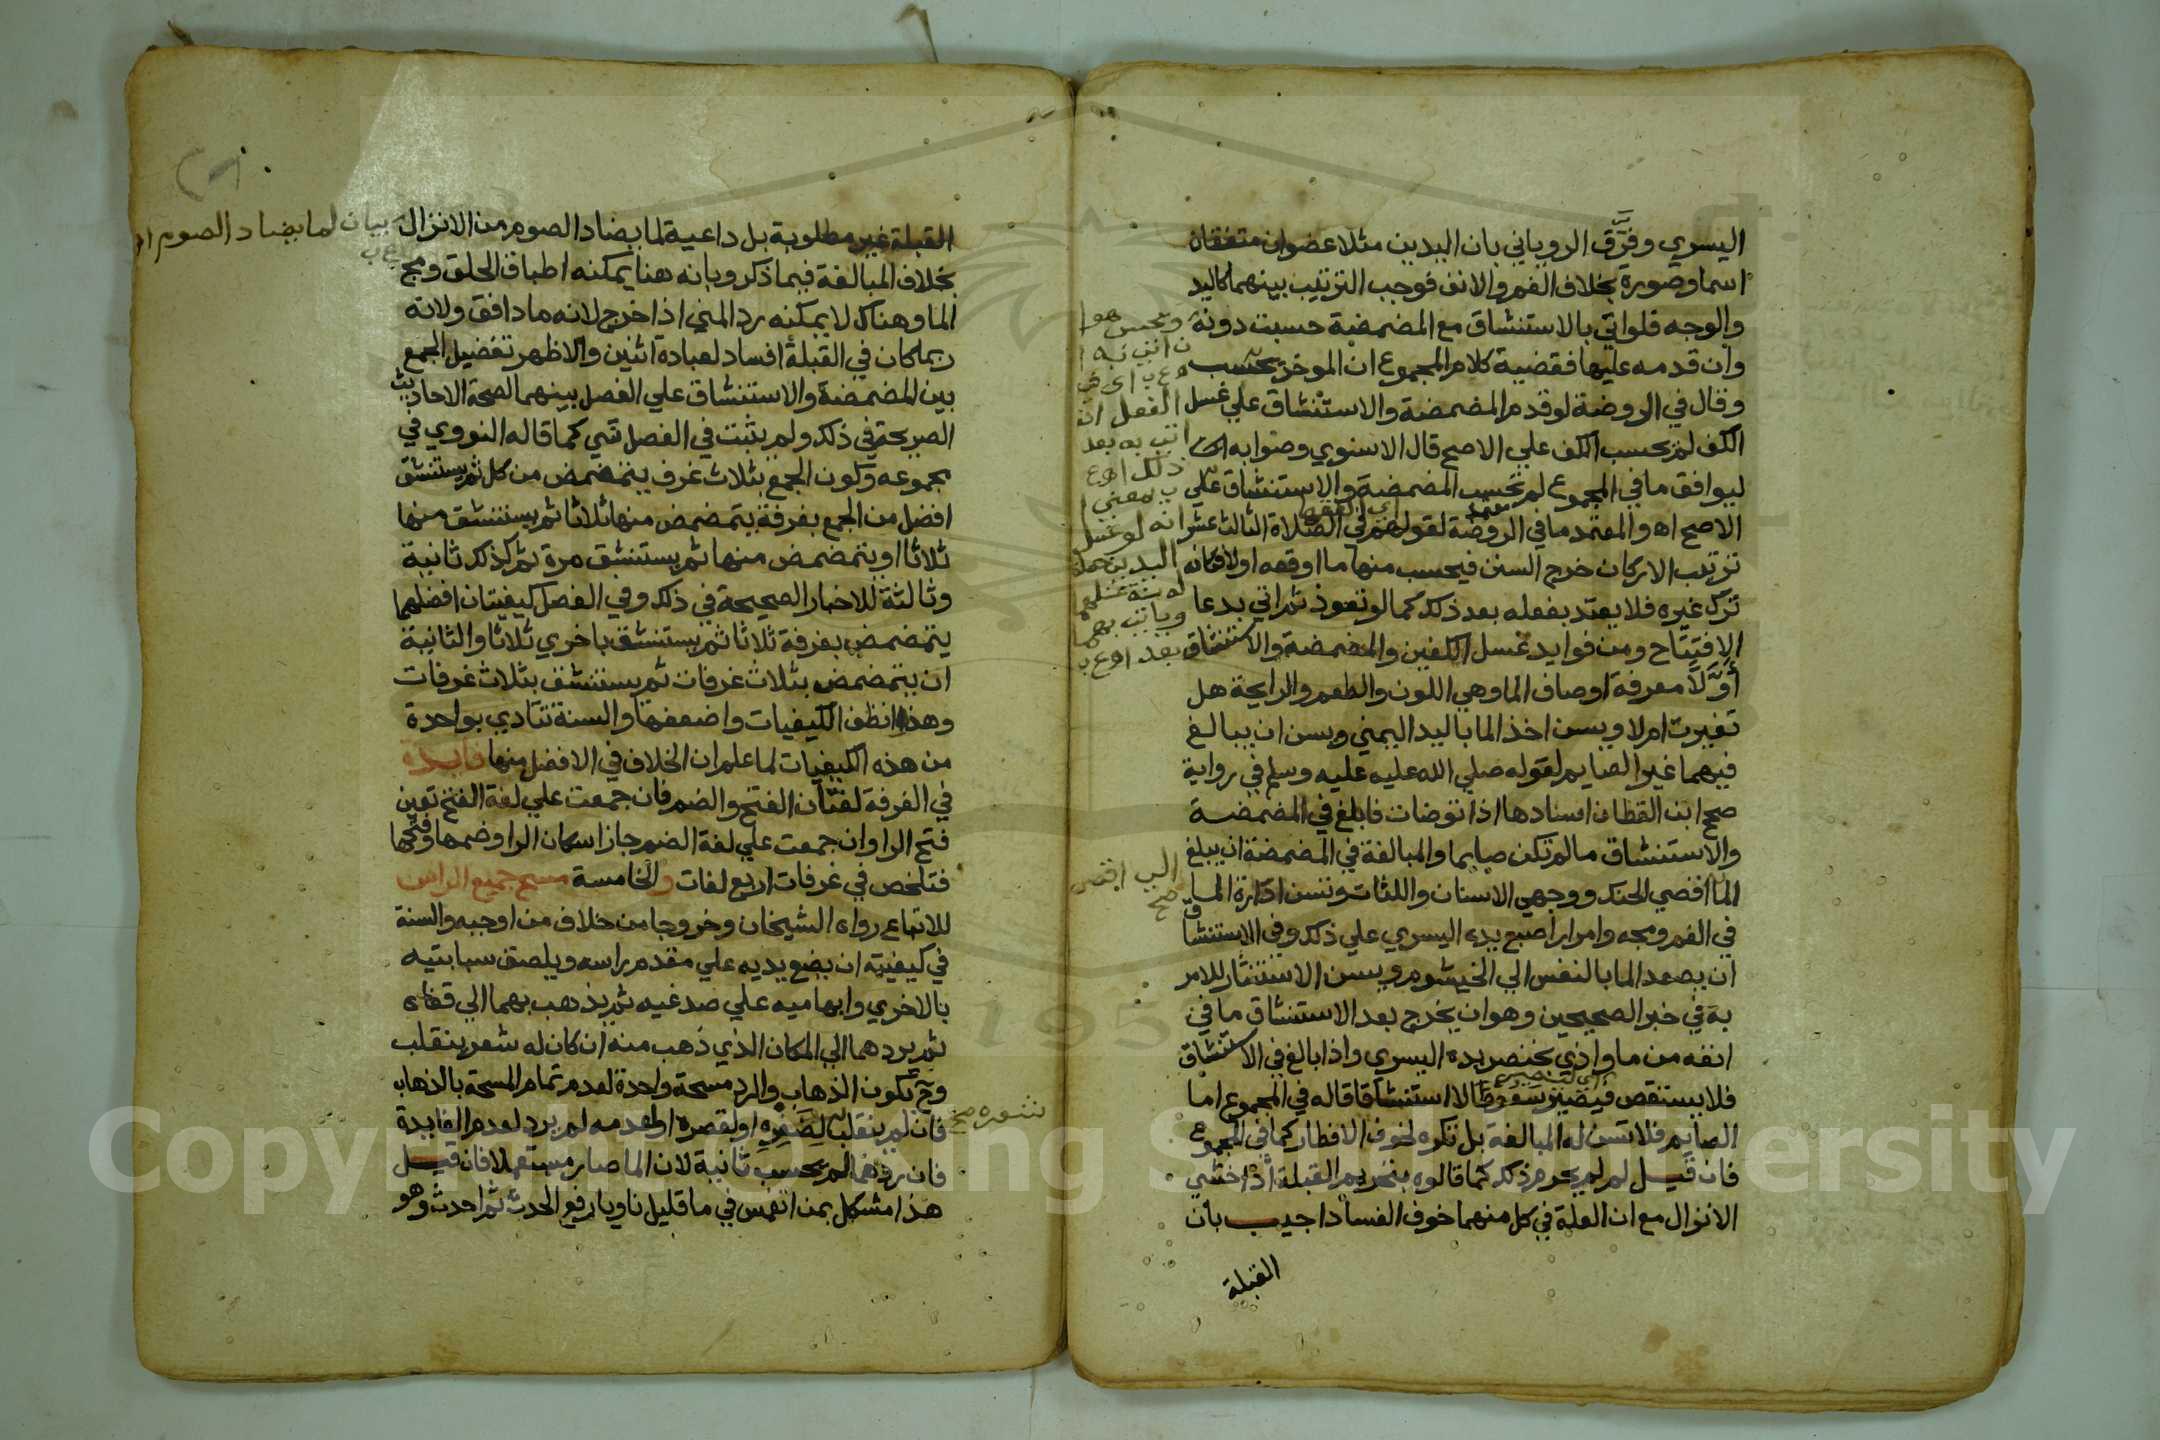 اليسري وفرق الروياني بان اليدين مثلا عضوان متفقان
اسما وصورة بخلاف الفم والانف فوجب الترتيب بينهما كاليد
والوجه فلو اتي بالاستنشاق مع المضمضة حسبت دونه
وان قدمه عليها فقضية كلام المجموع ان الموخر يحسب
وقال في الروضة لو قدم المضمضة والاستنشاق علي غسل
الكف لم يحسب الكف علي الاصح قال الاسنوي وصوابه
ليوافق ما في المجموع لم تحسب المضمضة والاستنشاق علي
الاصح اه والمعتمد ما في الروضة لقولهم في الصلاة الثالث عشر
ترتيب الاركان خرج السنن فيحسب منها ما اوقعه اولا فكانه
ترك غيره فلا يعتد بفعله بعد ذلك كما لو تعوذ ثم اتي بدعا
الافتتاح ومن فوايد غسل الكفين والمضمضة والاستنشاق
أولا معرفة اوصاف الما وهي اللون والطعم والرايحة هل
تغيرت ام لا ويسن اخذ الما باليد اليمني ويسن ان يبالغ
فيهما غير الصايم لقوله صلي الله عليه وسلم في رواية
صحح ابن القطان اسنادها اذا توضات فابلغ في المضمضة
والاستنشاق ما لم تكن صايما والمبالغة في المضمضة ان يبلغ
الما اقصي الحنك ووجهي الاسنان واللثات وتسن ادارة الما
في الفم ومجه وامرار اصبع يده اليسري علي ذلك وفي الاستنشاق
ان يصعد الما بالنفس الي الخيشوم ويسن الاستنثار للامر
به في خبر الصحيحين وهو ان يخرج بعد الاستنشاق ما في
انفه من ما واذي بخنصر يده اليسري واذا بالغ في الاستنشاق
فلا يستقص فيصير سعوطا لا استنشاقا قاله في المجموع اما
الصايم فلا تسن له المبالغة بل تكره لخوف الافطار كما في المجموع
فان قيل لم لم يحرم ذلك كما قالوه بتحريم القبلة اذا خشي
الانزال مع ان العلة في كل منهما خوف الفساد اجيب بان
القبلة
القبلة غير مطلوبة بل داعية لما يضاد الصوم من الانزال
بيان لما يضاد الصوم
بخلاف المبالغة فيما ذكر وبانه هنا يمكنه اطباق الحلق ومج
الما وهناك لا يمكنه رد المني اذا خرج لانه ما دافق ولانه
ربما كان في القبلة افساد لعبادة اثنين والاظهر تفضيل الجمع
بين المضمضة والاستنشاق علي الفصل بينهما لصحة الاحاديث
الصريحة في ذلك ولم يثبت في الفصل شي كما قاله النووي في
مجموعه وكون الجمع بثلاث غرف يتمضمض من كل ثم يستنشق
افضل من الجمع بغرفة يتمضمض منها ثلاثا ثم يستنشق منها
ثلاثا او يتمضمض منها ثم يستنشق مرة ثم كذلك ثانية
وثالثة للاخبار الصحيحة في ذلك وفي الفصل كيفيتان افضلهما
يتمضمض بغرفة ثلاثا ثم يستنشق باخري ثلاثا والثانية
ان يتمضمض بثلاث غرفات ثم يستنشق بثلاث غرفات
وهذه انظف الكيفيات واضعفها والسنة تتادي بواحدة
من هذه الكيفيات لما علم ان الخلاف في الافضل منها فايدة
في الغرفة لغتان الفتح والضم فان جمعت علي لغة الفتح تعين
فتح الرا وان جمعت علي لغة الضم جاز اسكان الرا وضمها وفتحها
فتلخص في غرفات اربع لغات والخامسة مسح جميع الراس
للاتباع رواه الشيخان وخروجا من خلاف من اوجبه والسنة
في كيفيته ان يضع يديه علي مقدم راسه ويلصق سبابتيه
بالاخري وابهاميه علي صدغيه ثم يذهب بهما الي قفاه
ثم يردهما الي المكان الذي ذهب منه ان كان له شعر ينقلب
وح تكون الذهاب والرد مسحة واحدة لعدم تمام المسحة بالذهاب
فان لم ينقلب لضفره او لقصره او لعدمه لم يرد لعدم الفايدة
فان ردهما لم تحسب ثانية لان الما صار مستعملا فان قيل
هذا مشكل بمن انغمس في ما قليل ناويا رفع الحدث ثم احدث وهو
Copyright © King Saud University